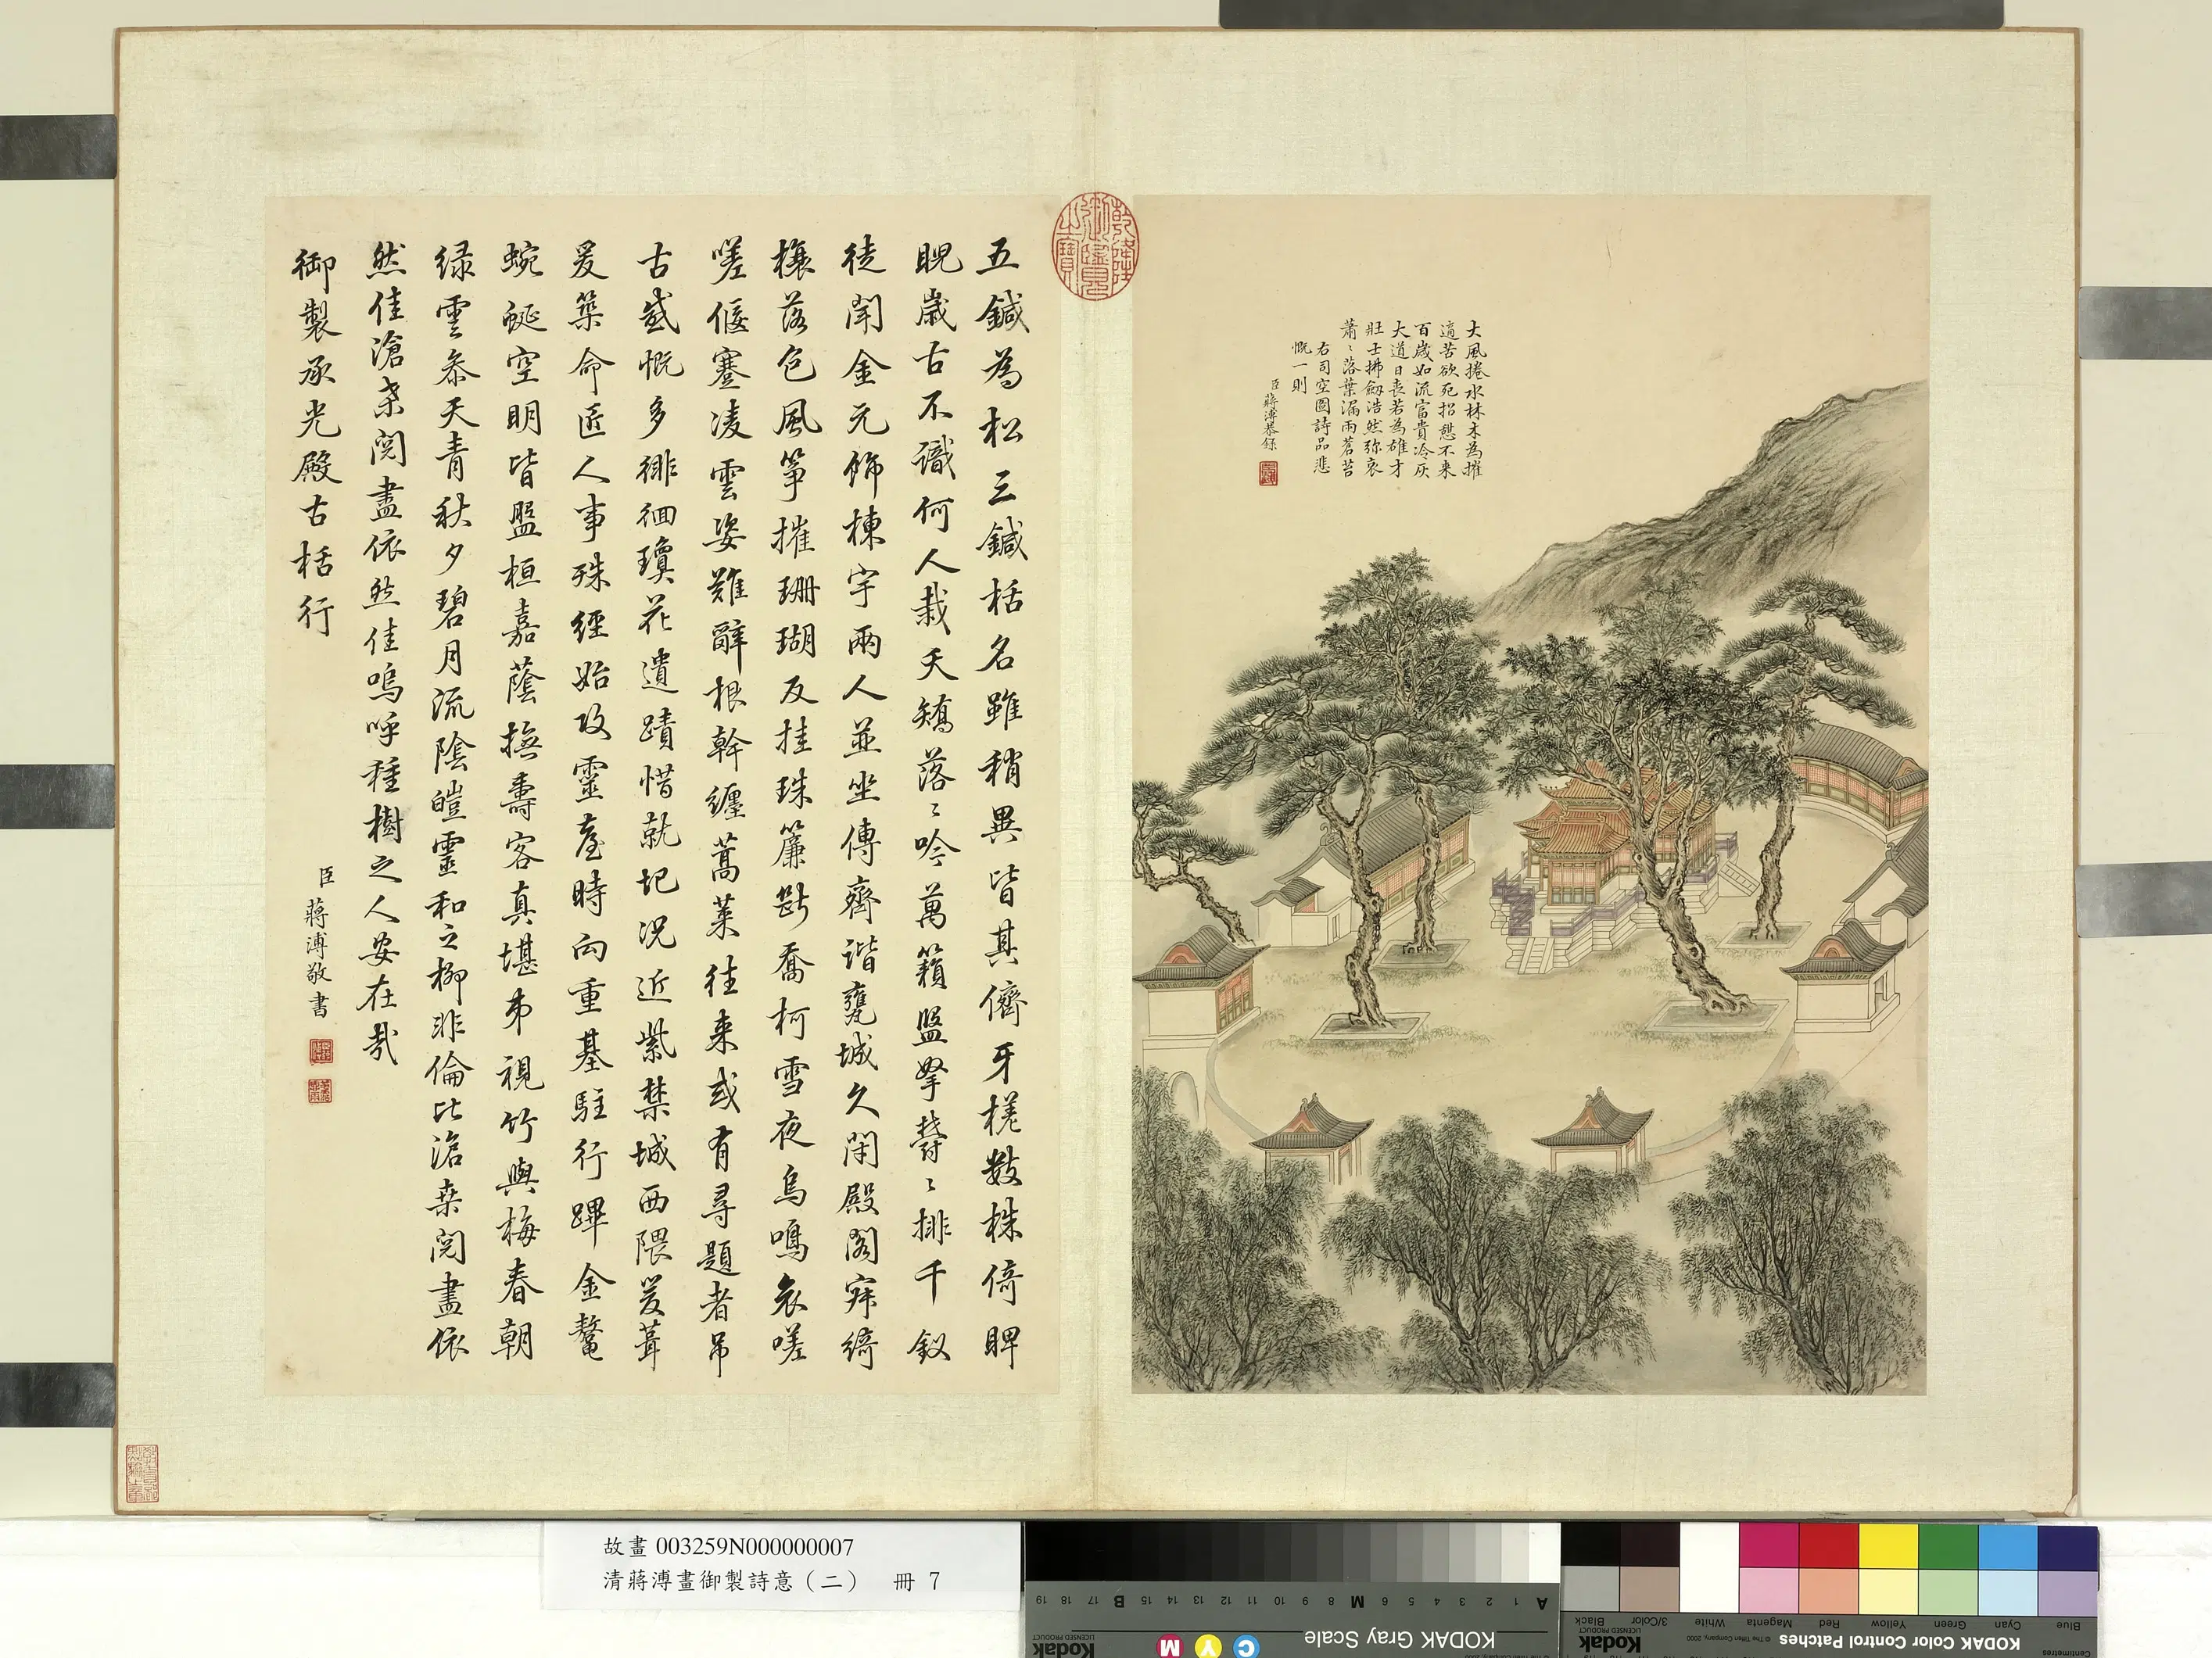 大風捲水林木為摧
適苦欲死招憩不來
百歲如流富貴冷灰
大道日喪若為雄才
壯士拂劒浩然弥哀
蕭〻落葉漏雨蒼苔
右司空圖詩品悲
慨一則
臣蔣溥恭錄
乾隆御覽之寶
五鍼為松三鍼栝名雖稍異皆其儕牙槎數株倚睥
睨歲古不識何人栽夭矯落〻吟萬籟盤拏欝〻排千釵
徒聞金元飾棟宇兩人並坐傳齊諧甕城久閑殿閣寐綺
櫰落色風箏摧珊瑚反挂珠簾斷喬柯雪夜烏鳴哀嗟
嗟偃蹇凌雲姿難辭根幹纏蒿萊往來或有尋題者吊
古感慨多徘徊瓊花遺蹟惜就圮況近紫禁城西隈爰葺
爰築命匠人事殊經始攻靈臺時向重基駐行蹕金鼇
蜿蜒空明皆盤桓嘉蔭撫壽客真堪弟視竹與梅春朝
緑雲叅天青秋夕碧月流陰皚靈和之柳非倫比滄桑閱盡依
然佳滄桑閱盡依然佳嗚呼種樹之人安在哉
御製承光殿古栝行
臣蔣溥敬書
故畫 003259N000000007
清蔣溥畫御製詩意（二） 冊 7
KODAK Gray Scale
A 1 2 3 4 5 6 M 8 9 10 11 12 13 14 15 B 17 18 19
C Y M
Kodak
LICENSED PRODUCT
KODAK Color Control Patches
© The Tiffen Company, 2000
Kodak
LICENSED PRODUCT
Centimetres
Blue Cyan Green Yellow Red Magenta White 3/Color Black